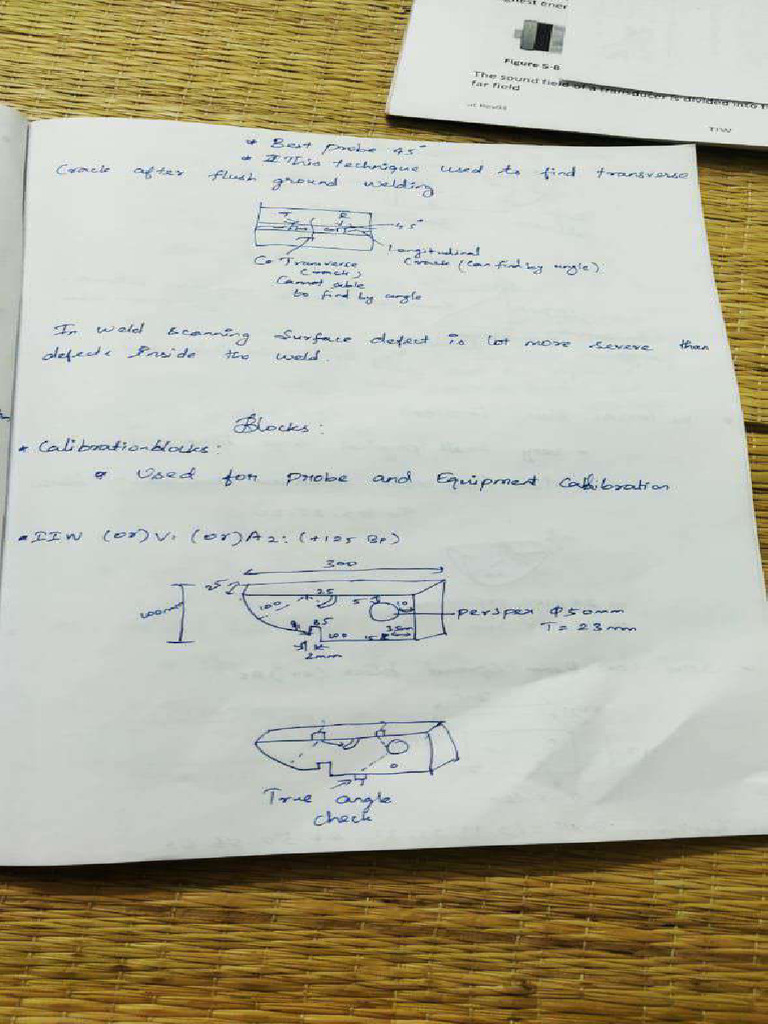 ghest ener
Figure 5-8
The sound field of a transducer is divided into
far field
TIW
* Best probe 45°
* This technique used to find transverse
Crack after flush ground welding
T R
45°
Longitudinal
Crack (Can find by angle)
Co Transverse
(crack)
Cannot able
to find by angle
In weld scanning surface defect is lot more severe than
defects inside the weld.
Blocks:
* Calibration blocks:
* Used for probe and Equipment Calibration
* IIW (or) V1 (or) A2:
300
25
100mm
100
25
5
10
perspex Φ50mm
T = 23mm
100
15
35mm
2mm
True angle
check